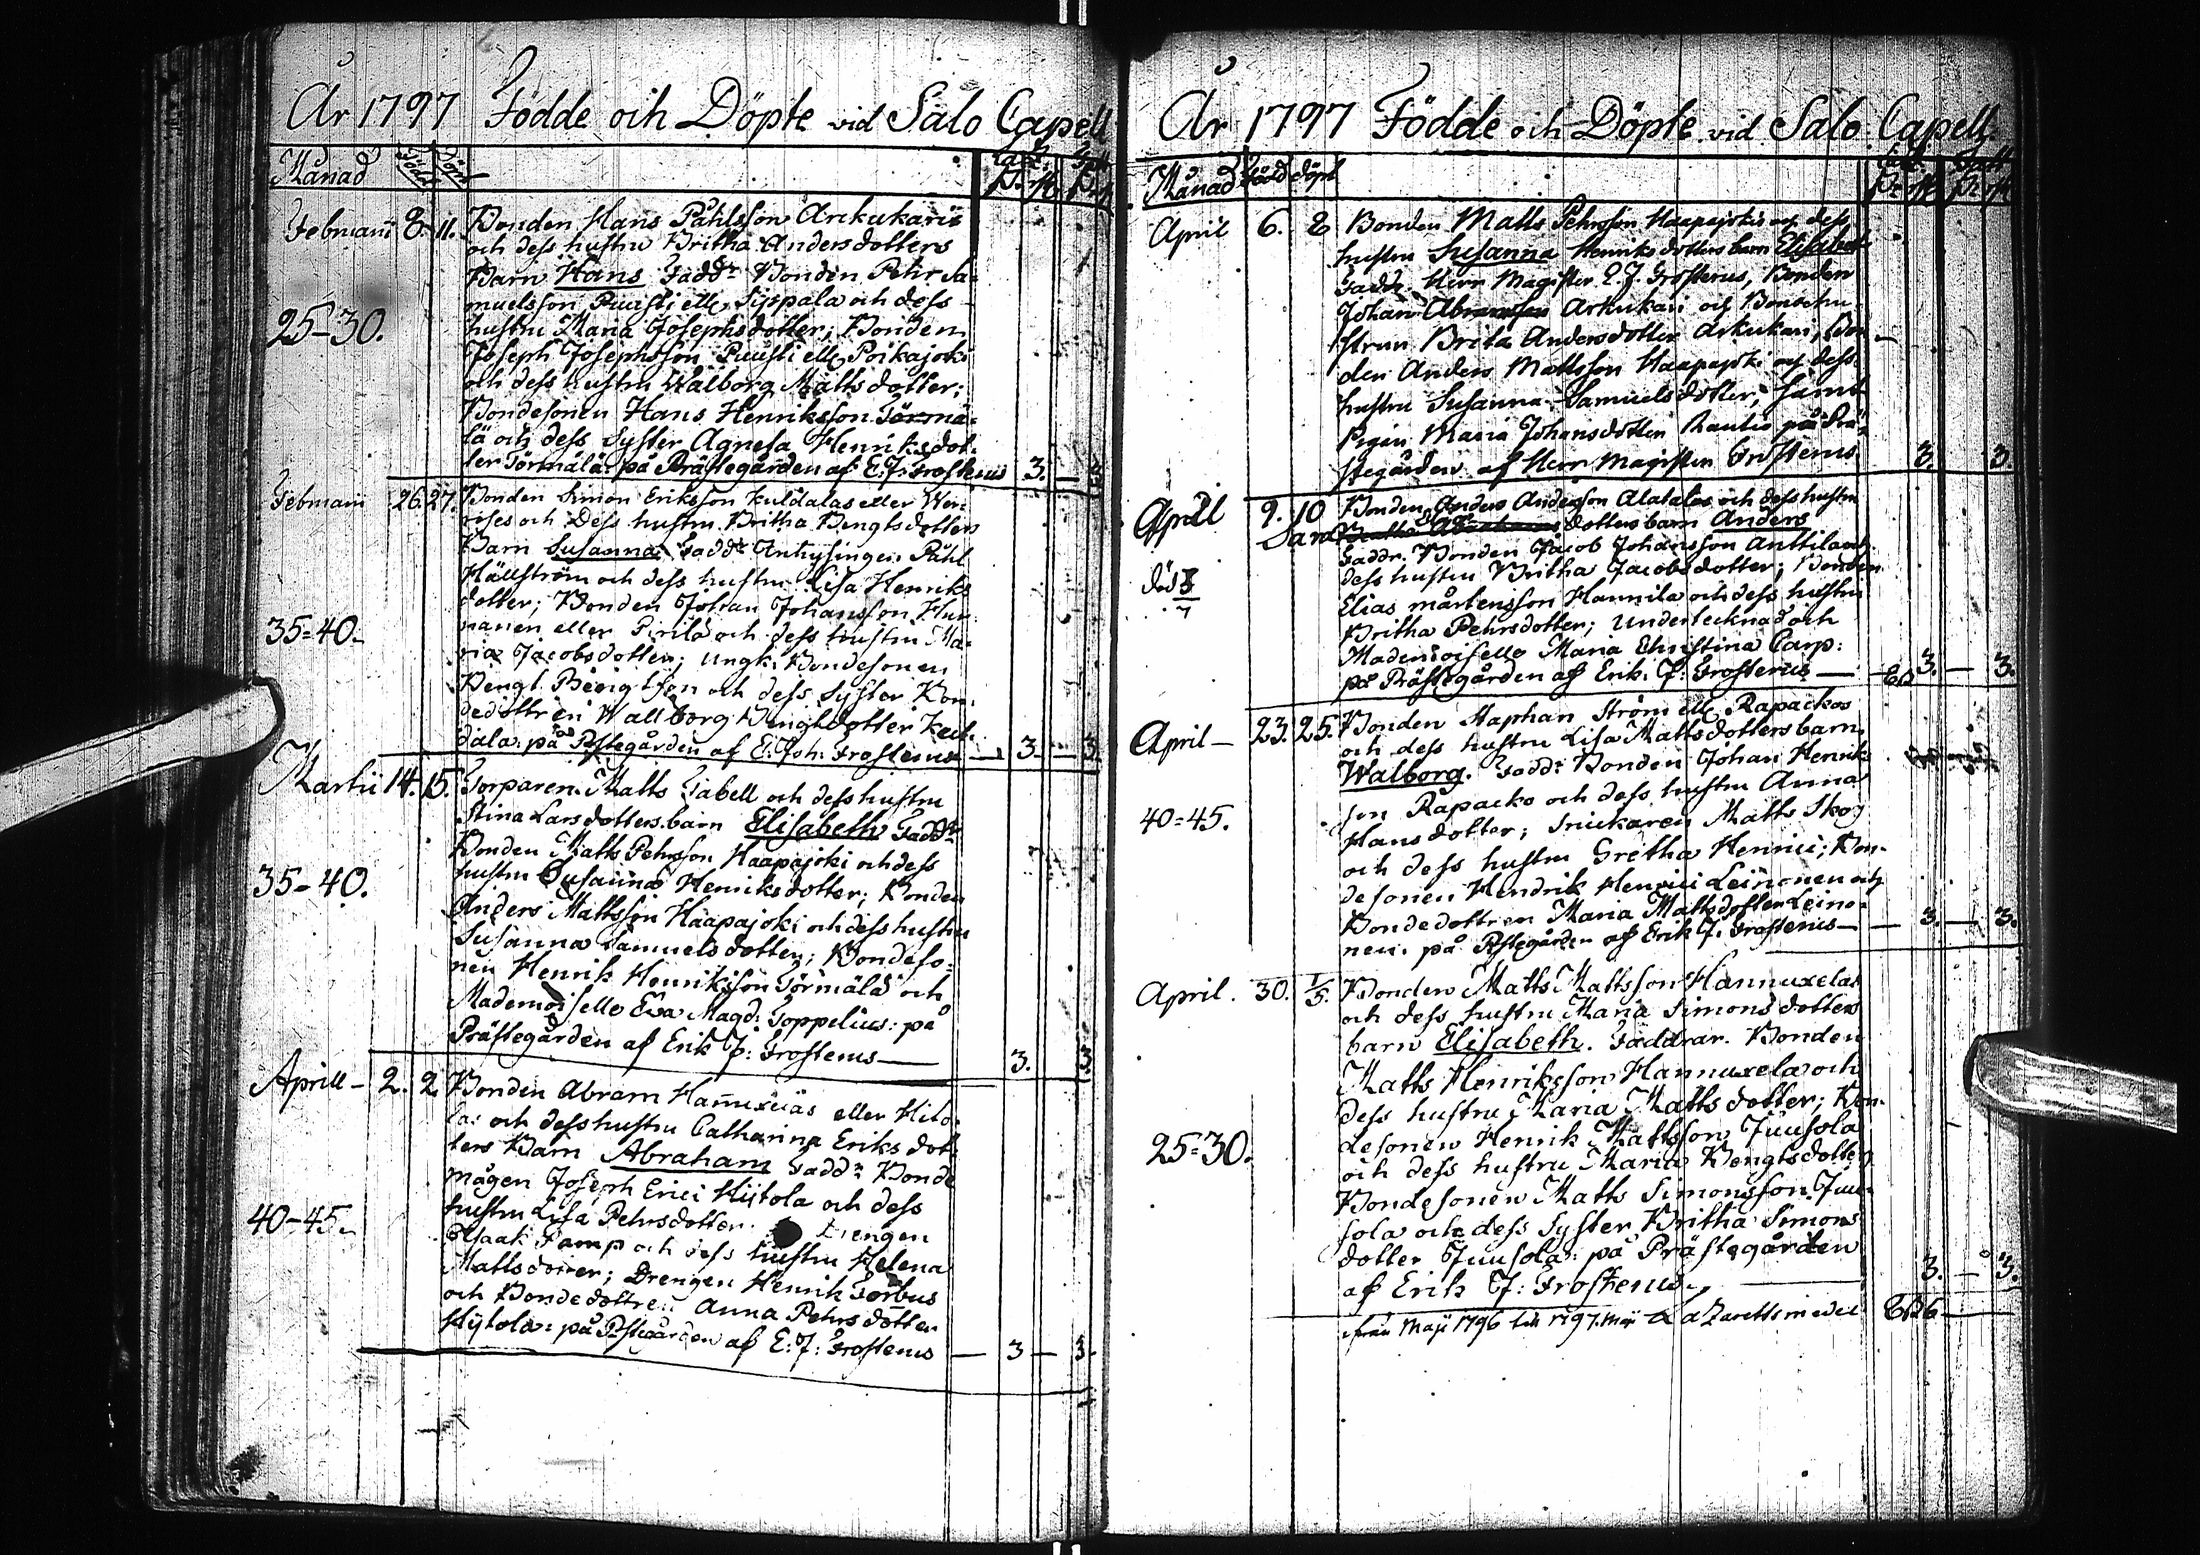 År 1797 Födde och Döpte vid Salo Capell
Månad Födde Döpt
Februarii 8. 11. Bonden Hans Påhlsson Arckukaris
och dess hustru Britha Anders dotters
Barn Hans Fadd: Bonden Pehr Sa-
muelsson Puusti ell. Sippala och dess
25-30. hustru Maria Josephsdotter; Bonden
Joseph Josephsson Puusti ell. Poikajoki
och dess hustru Walborg Matts dotter;
Bondesonen Hans Henriksson Törmä-
lä och dess Syster Agnesa Henriks dot-
ter Törmälä: på Prästegården af E. J. Frosterus 3.
Februarii 26. 27. Bonden Simon Eriksson Kuldalas eller
och Dess hustru Britha Bengts dotters
Barn Susanna. Fadd: Påhl
Hällström och dess hustru Lisa Henriks
dotter; Bonden Johan Johansson Hur-
nanen eller Pirilä och dess hustru Ma-
35=40. ria Jacobs dotter; ungk. Bondesonen
Bengt Bengtsson och dess Syster Bon-
dedottren Wallborg Bengts dotter
dala: på Pstegården af E: Joh: Frosterus — 3 — 3.
Martii 14. 15. Torparen Matts Gabell och dess hustru
Stina Lars dotters barn Elisabeth Fadd:
Bonden Matts Pehrsson Haapajoki och dess
35-40. hustru Susanna Henriks dotter; Bonden
Anders Mattsson Haapajoki och dess hustru
Susanna Samuels dotter; Bondeso-
nen Henrik Henriksson Törmälä och
Mademoiselle Eva Magd: Toppelius: på
Prästegården af Erik J: Frosterus — 3. 3
Aprill - 2. 2 Bonden Abram Hannuxelas eller
las och dess hustru Catharina Eriks dot-
ters Barn Abraham Fadd: Bonde
mågen Joseph Erici Hytola och dess
40-45. hustru Lisa Pehrs dotter. Drengen
Isaak Pamp och dess hustru Helena
Matts dotter; Drengen Henrik
och Bondedottren Anna Pehrs dotter
Hytola: på Pstegården af E: J: Frosterus — 3 — 3.
År 1797 Födde och Döpte vid Salo Capell.
Månad född döpt
April 6. 8 Bonden Matts Pehrsson Haapajokis och dess
hustru Susanna Henriks dotters barn Elisabet
Fadd. Herr Magister E. J. Frosterus, Bonden
Johan Abramsson Arkukari och Bondehu-
strun Brita Andersdotter Arkukari, Bon-
den Anders Mattsson Haapajoki och dess
hustru Susanna Samuels dotter, samt
Pigan Maria Johansdotter Rautio på Prä-
stegården af Herr Magister Frosterus 3. 3.
April 9. 10 Bonden Anders Andersson Alatalas och dess hustru
Sara dotters barn Anders
Faddr. Bonden Jacob Johansson Anttila och
död dess hustru Britha Jacobs dotter; Bonden
Elias Mårtensson Hannila och dess hustru
Britha Pehrs dotter; undertecknad och
Mademoiselle Maria Christina Carp:
på Prästegården af Erik. J: Frosterus — 3. — 3.
April - 23. 25. Bonden Staphan Ström ell. Rapackos
och dess hustru Lisa Matts dotters barn
Walborg. Fadd: Bonden Johan Henriks
son Rapacko och dess hustru Anna
40=45. Hans dotter; Snickaren Matts Skog
och dess hustru Gretha Henrici; Bon-
desonen Hendrik Henrici Leinonen och
Bondedottren Maria Matts dotter Leino-
nen: på Pstegården af Erik J. Frosterus — 3. — 3.
April. 30. 1/5. Bonden Matts Mattsson Hannuxelas
och dess hustru Maria Simons dotters
barn Elisabeth. Faddrar. Bonden
Matts Henriksson Hannuxela och
dess hustru Maria Matts dotter; Bon-
desonen Henrik Mattsson Juusola
25=30. och dess hustru Maria Bengts dotter;
Bondesonen Matts Simonsson Juu-
sola och dess Syster Britha Simons
dotter Juusola: på Prästegården
af Erik J: Frosterus. 3. — 3.
ifrån Maji 1796 till 1797. Maji Lazarettsmedel